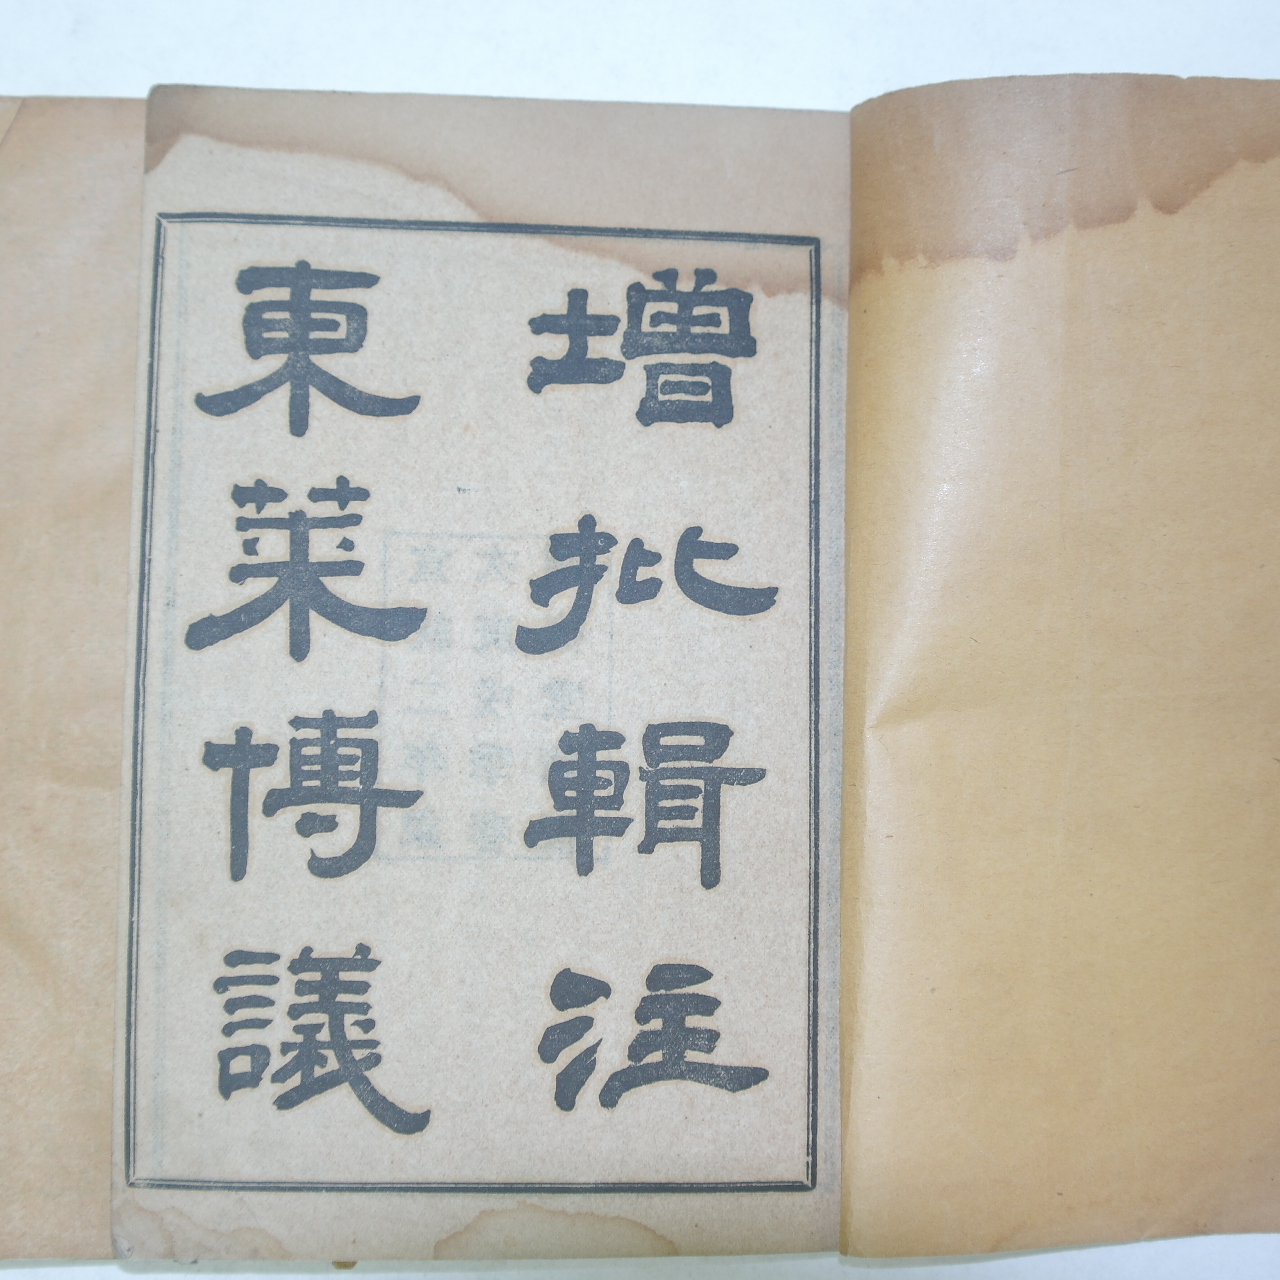 增批輯注
東萊博議